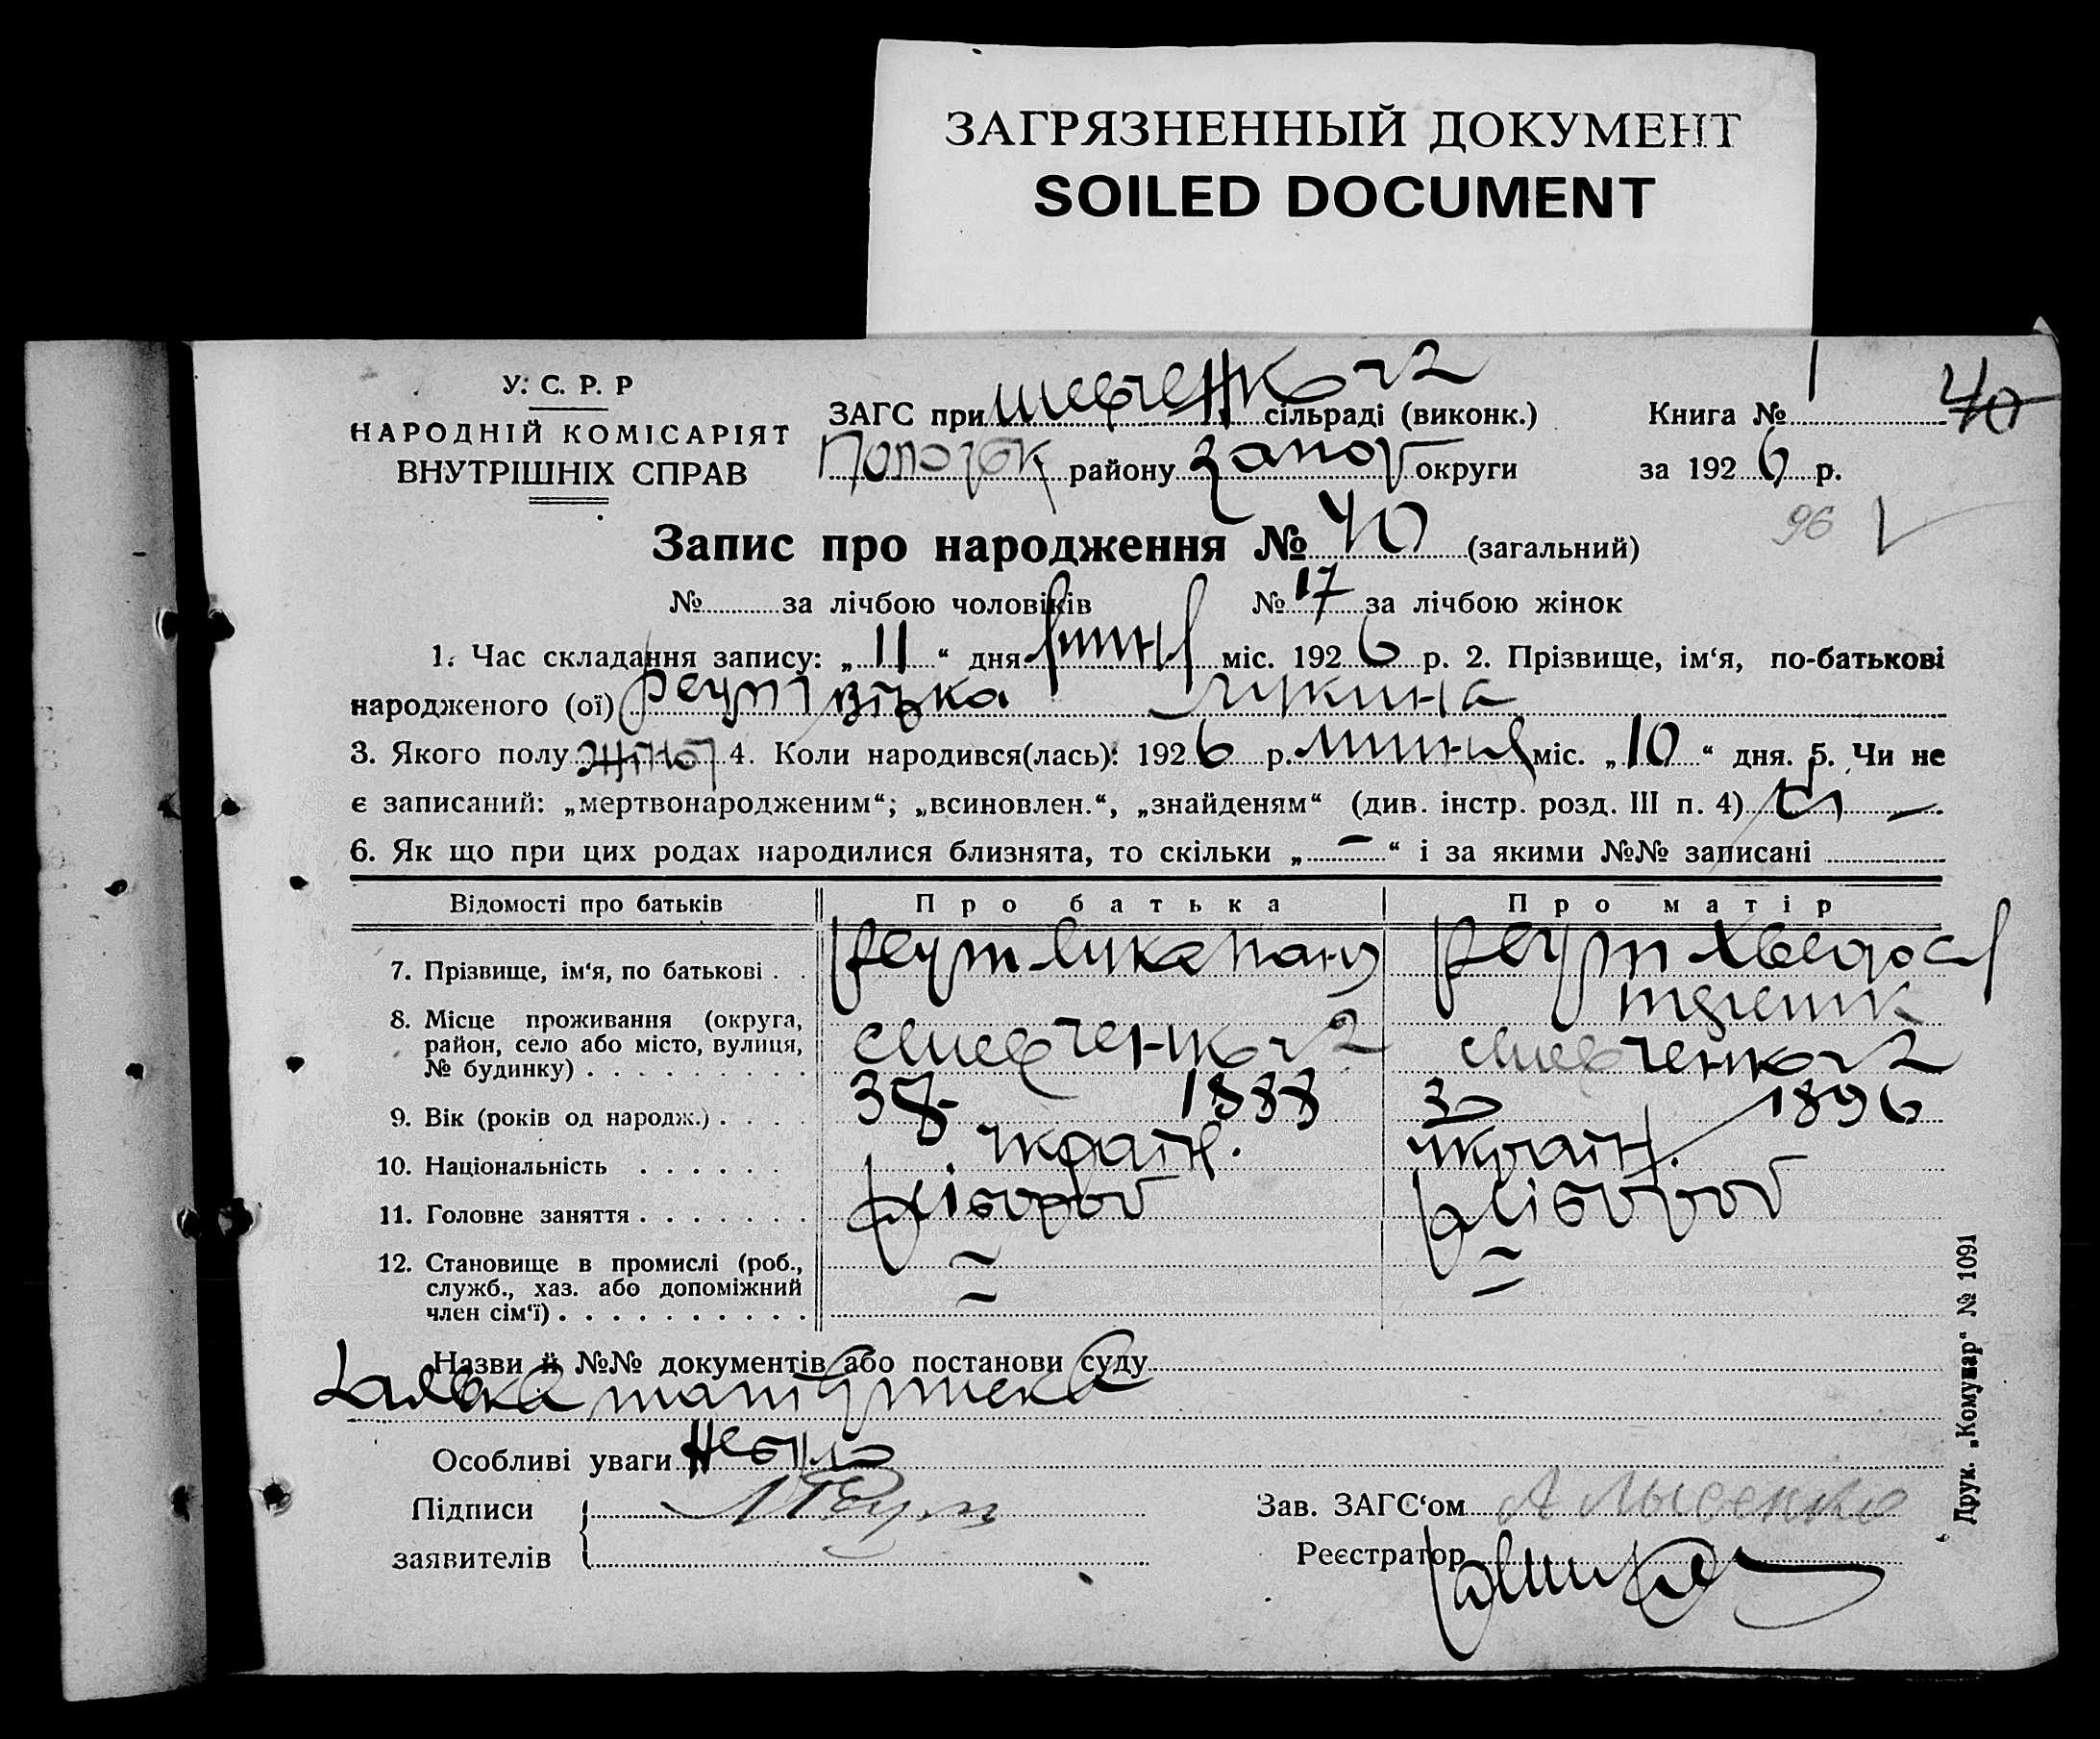 ЗАГРЯЗНЕННЫЙ ДОКУМЕНТ
SOILED DOCUMENT
У. С. Р. Р
НАРОДНІЙ КОМІСАРІЯТ
ВНУТРІШНІХ СПРАВ
ЗАГС при Шевченко № 2 сільраді (виконк.)
району Запор округи
Книга № 1
40
за 1926 р.
96
Запис про народження № 40 (загальний)
№ за лічбою чоловіків № 17 за лічбою жінок
1. Час складання запису: „11“ дня міс. 1926 р. 2. Прізвище, ім‘я, по-батькові
народженого (ої) Реут
3. Якого полу жіноч 4. Коли народився(лась): 1926 р. липня міс. „10“ дня. 5. Чи не
є записаний: „мертвонародженим“; „всиновлен.“, „знайденям“ (див. інстр. розд. III п. 4)
6. Як що при цих родах народилися близнята, то скільки „–“ і за якими №№ записані
Відомості про батьків Про батька Про матір
7. Прізвище, ім‘я, по батькові Реут Лука Реут Хведося
8. Місце проживання (округа, район, село або місто, вулиця, № будинку) с Шевченко № 2 с Шевченко № 2
9. Вік (років од народж.) 38 1888 30 1896
10. Національність україн. україн.
11. Головне заняття хлібороб хлібороб
12. Становище в промислі (роб., служб., хаз. або допоміжний член сім‘ї) – –
Назви й №№ документів або постанови суду
Особливі уваги
Підписи
заявителів Реут
Зав. ЗАГС‘ом А Лысенко
Реєстратор
Друк. „Комунар“ № 1091